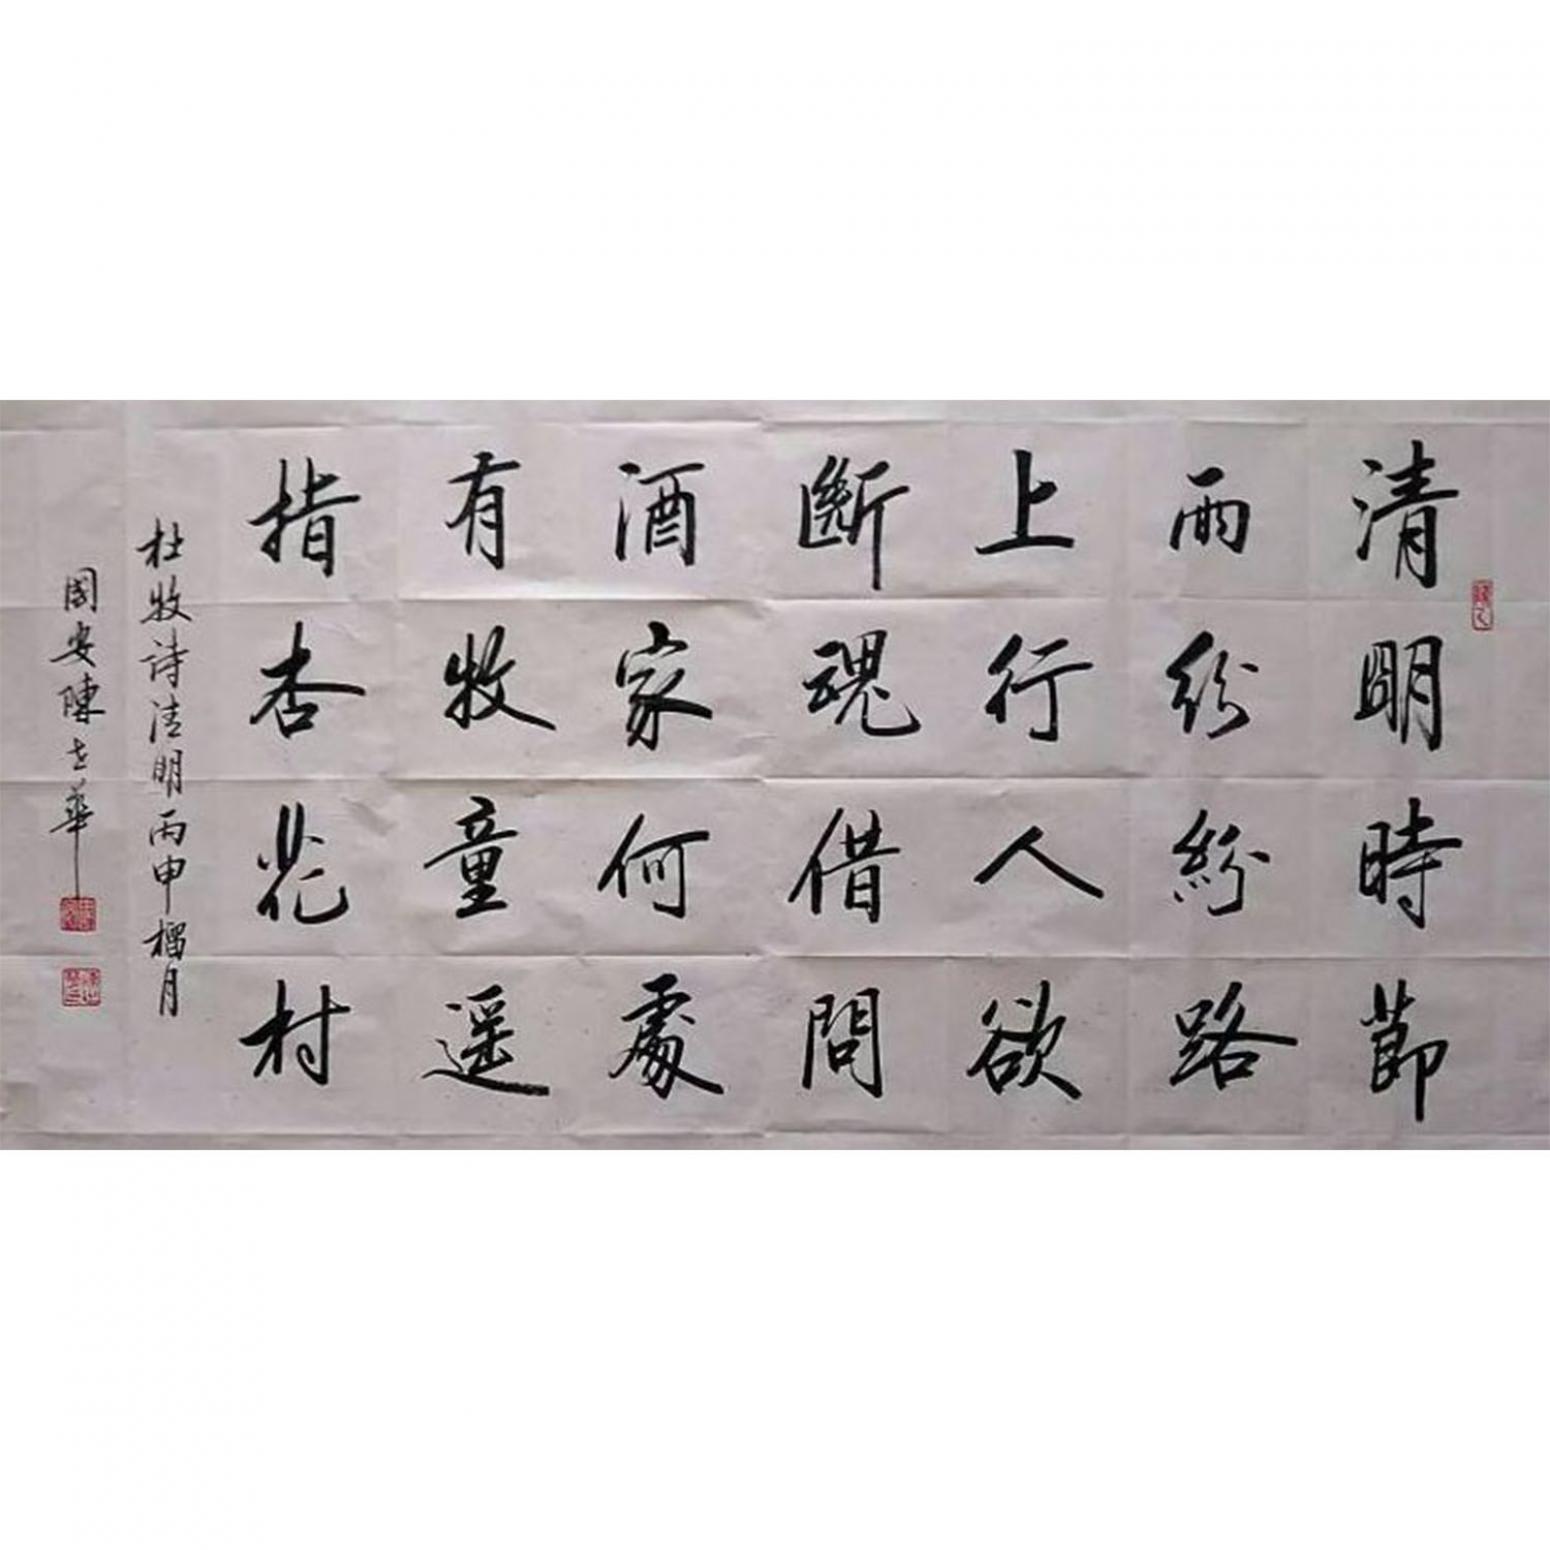 清明時節
雨紛紛路
上行人欲
斷魂借問
酒家何處
有牧童遥
指杏花村
杜牧詩清明丙申榴月
國安陳志華